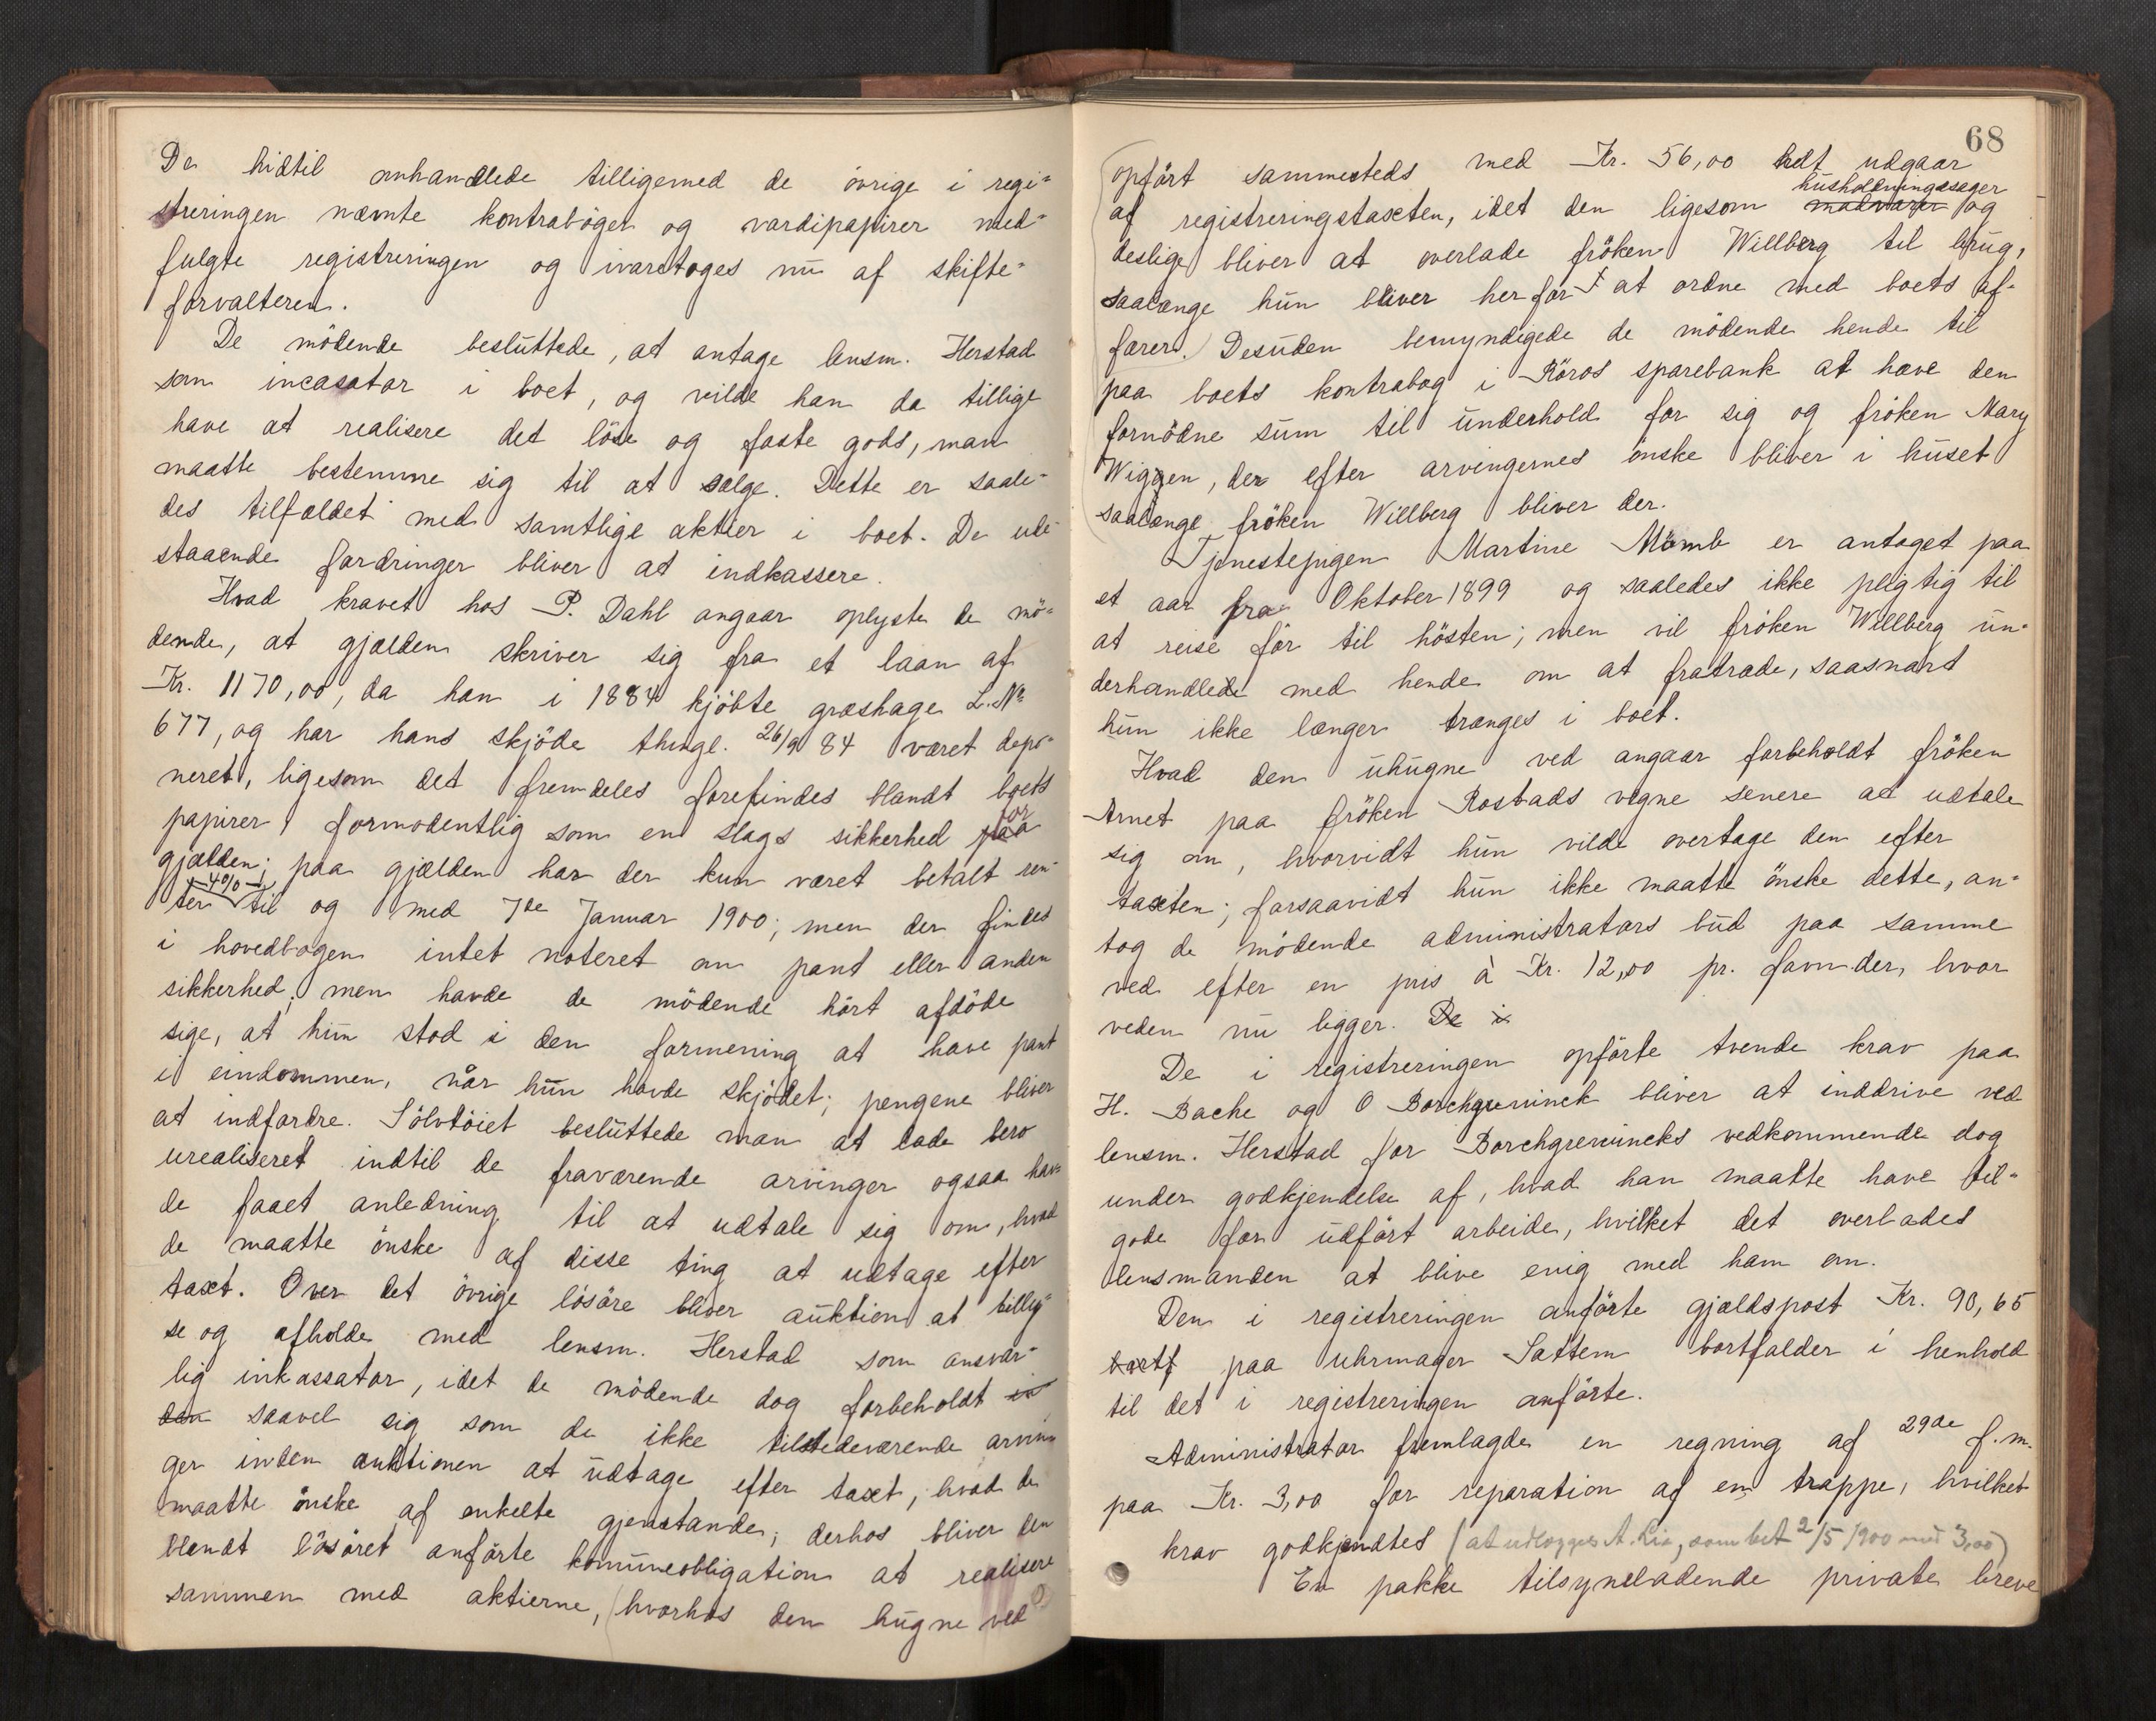 De hidtil omhandlede tilligemed de övrige i regi=
streringen nævnte kontraböger og værdipapirer med=
fulgte registreringen og ivaretoges nu af skifte=
forvalteren.
De mödende besluttede, at antage lensm. Herstad
som incasator i boet, og vilde han da tillige
have at realisere det löse og faste gods, man
maatte bestemme sig til at sælge. Dette er saale-
des tilfældet med samtlige aktier i boet. De ude-
staaende fordringer bliver at indkassere.
Hvad kravet hos P. Dahl angaar oplyste de mö=
dende, at gjælden skriver sig fra et laan af
Kr. 1170,00, da han i 1884 kjöbte græshage L.No
677, og har hans skjöde thingl. 26/9 84 været depo=
neret, ligesom det fremdeles forefindes blandt boets
papirer formodentlig som en slags sikkerhed paa for
gjælden; paa gjælden har der kun været betalt ren-
ter - 4% - til og med 7de Januar 1900; men der findes
i hovedbogen intet noteret om pant eller anden
sikkerhed; men havde de mödende hört afdöde
sige, at hun stod i den formening at have pant
i eindommen, når hun havde skjödet; pengene bliver
at indfordre. Sölvtöiet besluttede man at lade bero
urealiseret indtil de fraværende arvinger ogsaa hav=
de faaet anledning til at udtale sig om, hvad
de maatte önske af disse ting at udtage efter
taxt. Over det övrige lösöre bliver auktion at billy=
se og afholde med lensm. Herstad som ansvar=
lig inkassator, idet de mödende dog forbeholdt in
den saavel sig som de ikke tilstedeværende arvin
ger inden auktionen at udtage efter taxt, hvad de
maatte önske af enkelte gjenstande; derhos bliver den
blandt lösöret anförte komuneobligation at realisere
sammen med aktierne, (hvorhos den hugne ved
68
opfört sammesteds med Kr. 56,00 helt udgaar
af registreringstaxten, idet den ligesom madvarer husholdningssager og
deslige bliver at overlade fröken Willberg til brug,
saalænge hun bliver her for at ordne med boets af-
færer.) Desuden bemyndigede de mödende hende til
paa boets kontrabog i Röros sparebank at hæve den
fornödne sum til underhold for sig og fröken Mary
Wiggen, der efter arvingernes önske bliver i huset
saalænge fröken Willberg bliver der.
Tjenestepigen Martine Momb er antaget paa
et aar fra Oktober 1899 og saaledes ikke pligtig til
at reise för til hösten; men vil fröken Willberg un-
derhandlede med hende om at fratræde, saasnart
hun ikke længer trænges i boet.
Hvad den uhugne ved angaar forbeholdt fröken
Arnet paa fröken Rostads vegne senere at udtale
sig om, hvorvidt hun vilde overtage den efter
taxten; forsaavidt hun ikke maatte önske dette, an=
tog de mödende administrators bud paa samme
ved efter en pris à Kr. 12,00 pr. favn der, hvor
veden nu ligger. De i
De i registreringen opförte tvende krav paa
H. Bache og O Borchgrevinck bliver at inddrive ved
lensm. Herstad for Borchgrevincks vedkommende dog
under godkjendelse af, hvad han maatte have til=
gode for udfört arbeide, hvilket det overlades
lensmanden at blive enig med ham om.
Den i registreringen anförte gjældspost Kr. 90,65
bortf paa uhrmager Sættem bortfalder i henhold
til det i registreringen anförte.
Administrator fremlagde en regning af 29de f.m.
paa Kr. 3,00 for reparation af en trappe, hvilket
krav godkjendtes (at udlægges A. Lie, som bet 2/5 1900 med 3,00)
En pakke tilsyneladende private breve